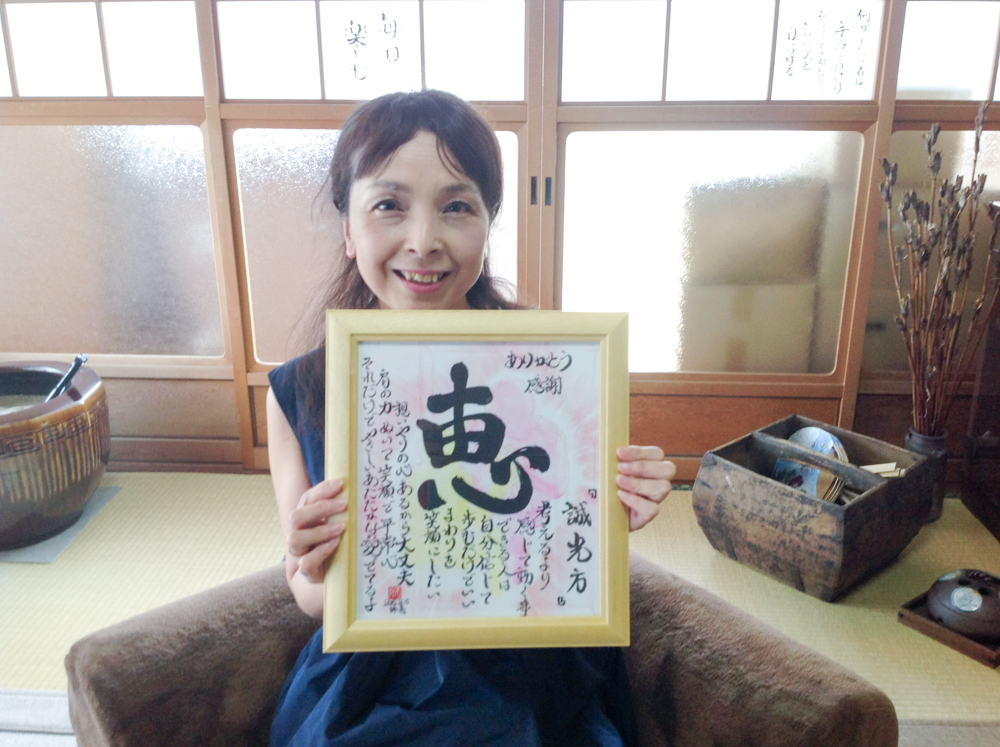 毎日
楽しむ
ありがとう
感謝
恵
誠光方
考えるより
感じて動く事
できる人は
自分信じて
歩むだけでいい
まわりを
笑顔にしたい
想いやりの心あるから大丈夫
肩の力ぬいて笑顔で平常心
それだけでやさしいあたたかな